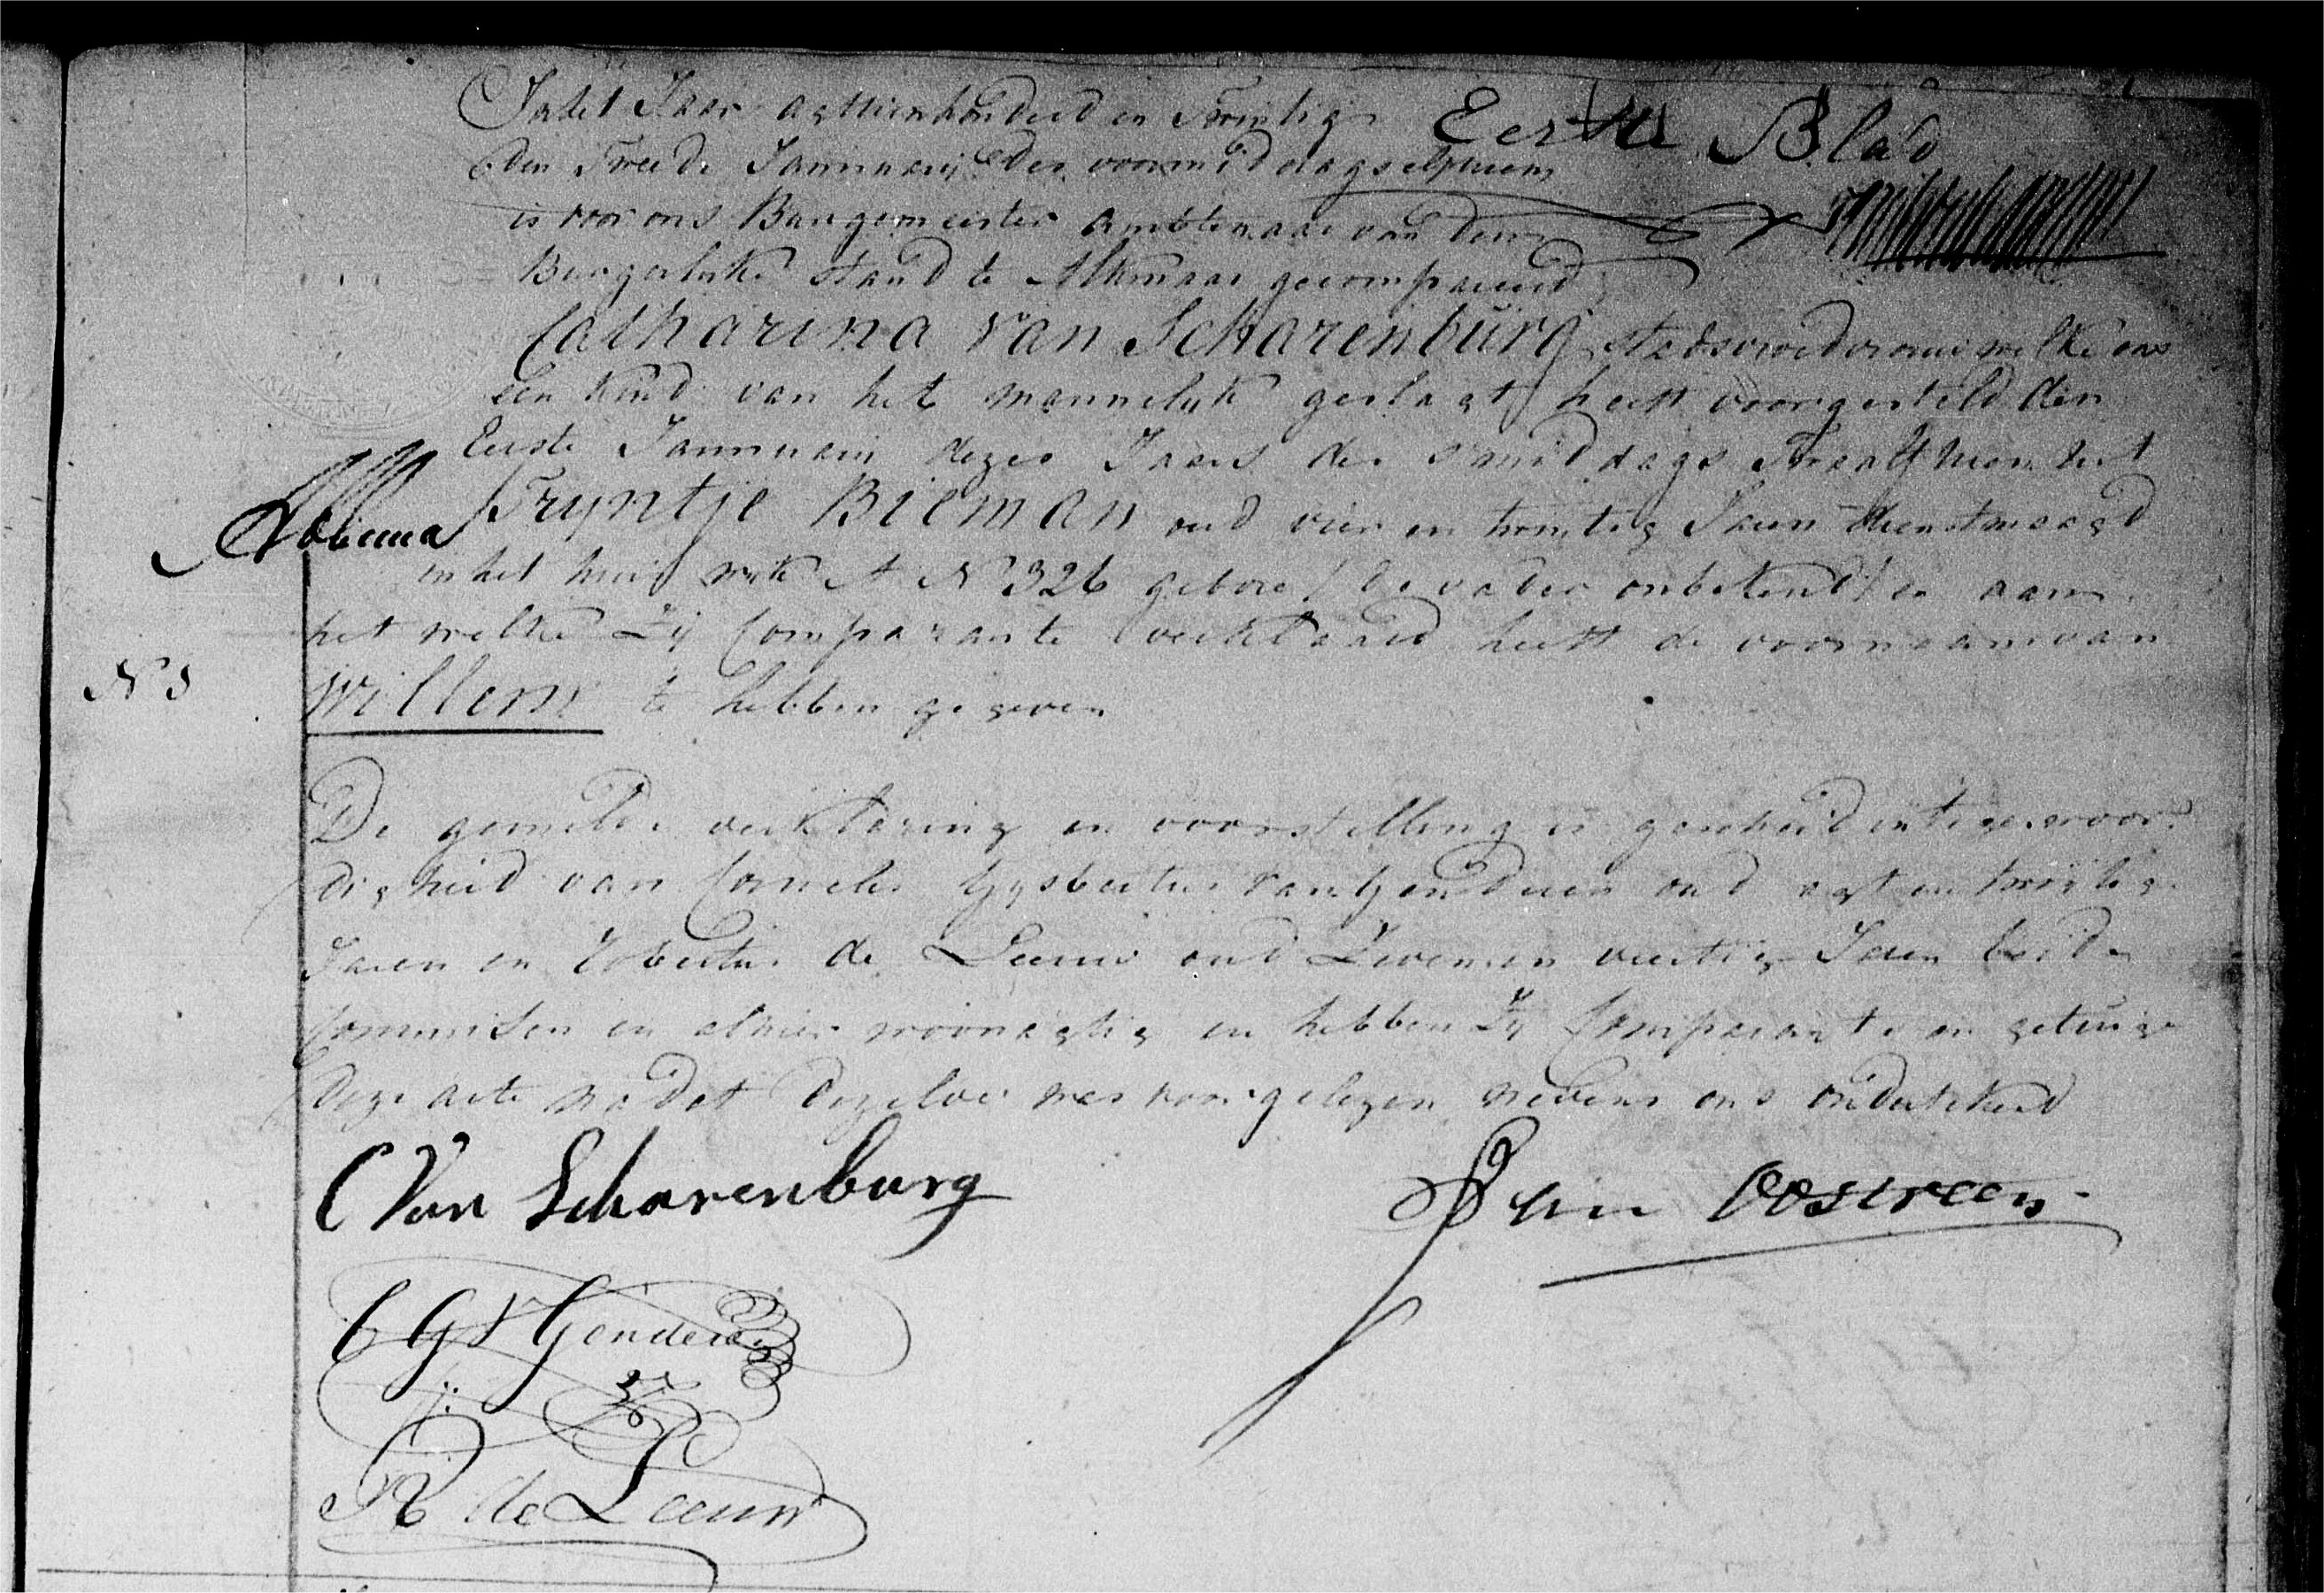 Eerste Blad
In het Jaar agttienhonderd en Twintig
den Tweede Januarij des voormiddags elf uren
is voor ons Burgemeester Ambtenaar van den
Burgerlijke stand te Alkmaar gecompareerd
Catharina van Scharenburg stadsvroedvrouw welke ons
een kind van het mannelijk geslagt heeft voorgesteld den
Eerste Januarij dezes Jaars des smiddags Twaalf uren uit
Tryntje Bieman oud vier en twintig Jaren dienstmaagd
in het huis wijk A N 326 gebore / de vader onbekend / en aan
het welke Zij Comparante verklaard heeft de voornaam van
N
Willem te hebben gegeven
De gemelde verklaring en voorstelling is geschied in tegenwoor
digheid van Cornelis Gysbertus van Genderen oud agt en twintig
Jaren en Robertus de Leeuw oud Zeven en veertig Jaren beide
Commisen en alhier woonagtig en hebben Zij Comparante en getuige
deze acte na dat dezelve was voorgelezen nevens ons ondertekend
C Van Scharenburg
van Oostveen
C G V Genderen
R de Leeuw